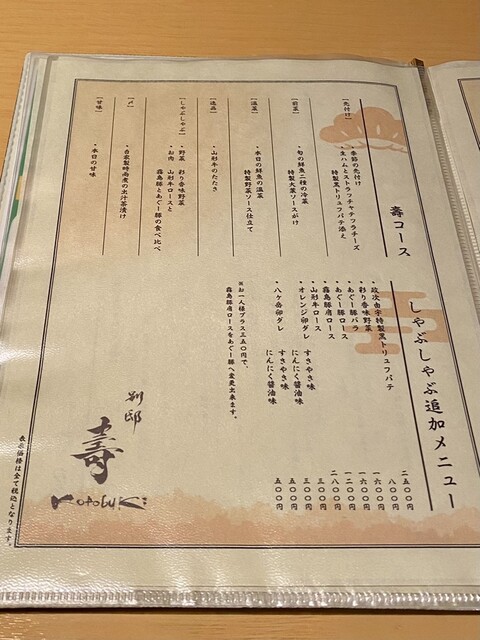 壽コース
【先付け】
・季節の先付け
・生ハムとストラッチャテッラチーズ
特製黒トリュフパテ添え
【前菜】
・旬の鮮魚二種の冷菜
特製大葉ソースがけ
【温菜】
・本日の鮮魚の温菜
特製野菜ソース仕立て
【逸品】
・山形牛のたたき
【しゃぶしゃぶ】
・野菜 彩り香味野菜
・お肉 山形牛ロースと
霧島豚とあぐー豚の食べ比べ
【〆】
・自家製時雨煮の出汁茶漬け
【甘味】
・本日の甘味
しゃぶしゃぶ追加メニュー
・政次由宇特製黒トリュフパテ 二五〇〇円
・彩り香味野菜 八〇〇円
・あぐー豚バラ 一六〇〇円
・あぐー豚ロース 一六〇〇円
・霧島豚肩ロース 一二〇〇円
・山形牛ロース 二八〇〇円
・オレンジ卵ダレ すきやき味 三〇〇円
にんにく醤油味 三〇〇円
・八ヶ岳卵ダレ すきやき味 五〇〇円
にんにく醤油味 五〇〇円
※お一人様プラス三五〇円で、
霧島豚肩ロースをあぐー豚へ変更出来ます。
別邸
壽
Kotobuki
表示価格は全て税込となります。